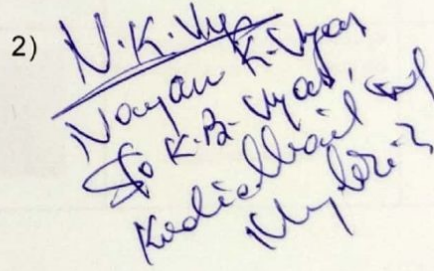 2) N.K.Vyas
Nayan K. Vyas
S/o K.B. Vyas,
Kodialbail